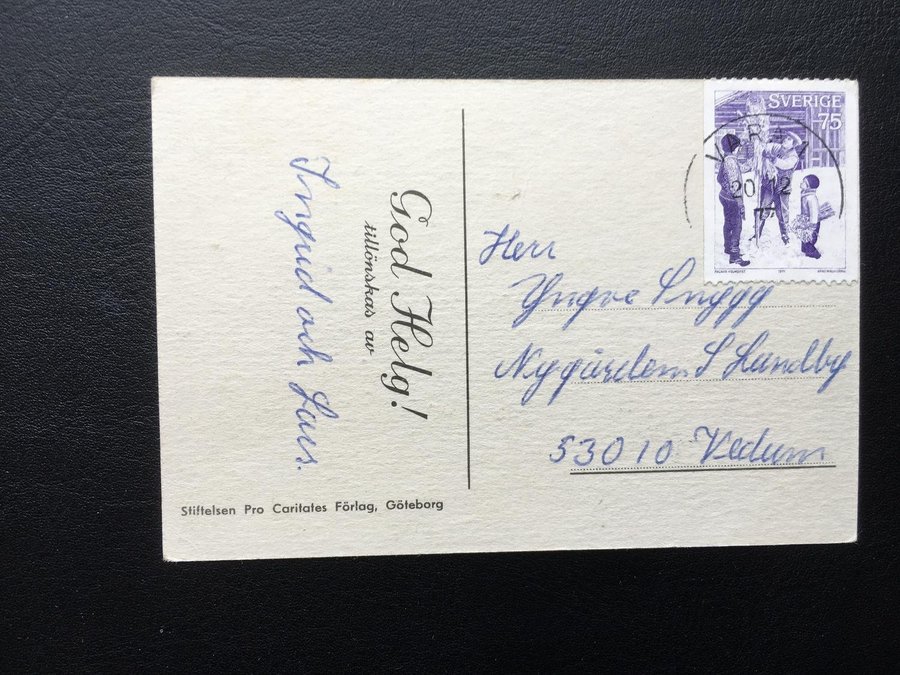 God Helg!
tillönskas av
Ingrid och Lars.
Stiftelsen Pro Caritates Förlag, Göteborg
SVERIGE
75
VARA 1
20 12
77
Herr
Yngve Snygg
Nygården S Lundby
53010 Vedum